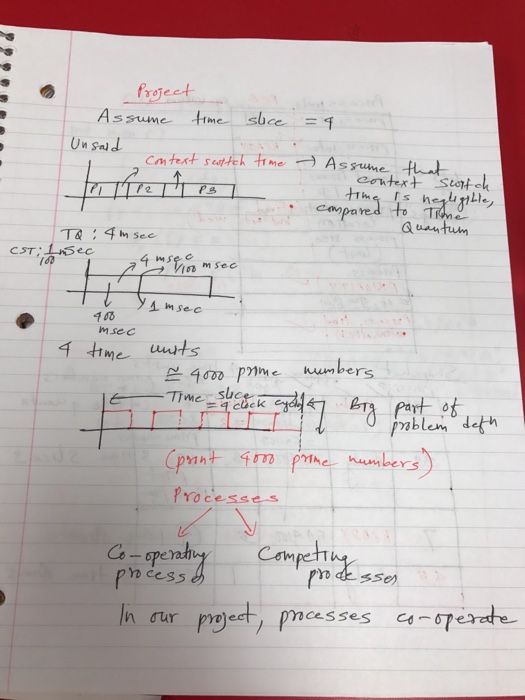 Project
Assume time slice = 4
Unsaid
Context switch time → Assume that
context switch
time is negligible,
compared to Time
Quantum
P1 P2 P3
TQ : 4 msec
CST : 1/100 msec
4 msec
1/100 msec
400
msec
1 msec
4 time units
≅ 4000 prime numbers
Time slice
= 4 clock cycles
Big part of
problem defn
(print 4000 prime numbers)
Processes
Co-operating
processes
Competing
processes
In our project, processes co-operate